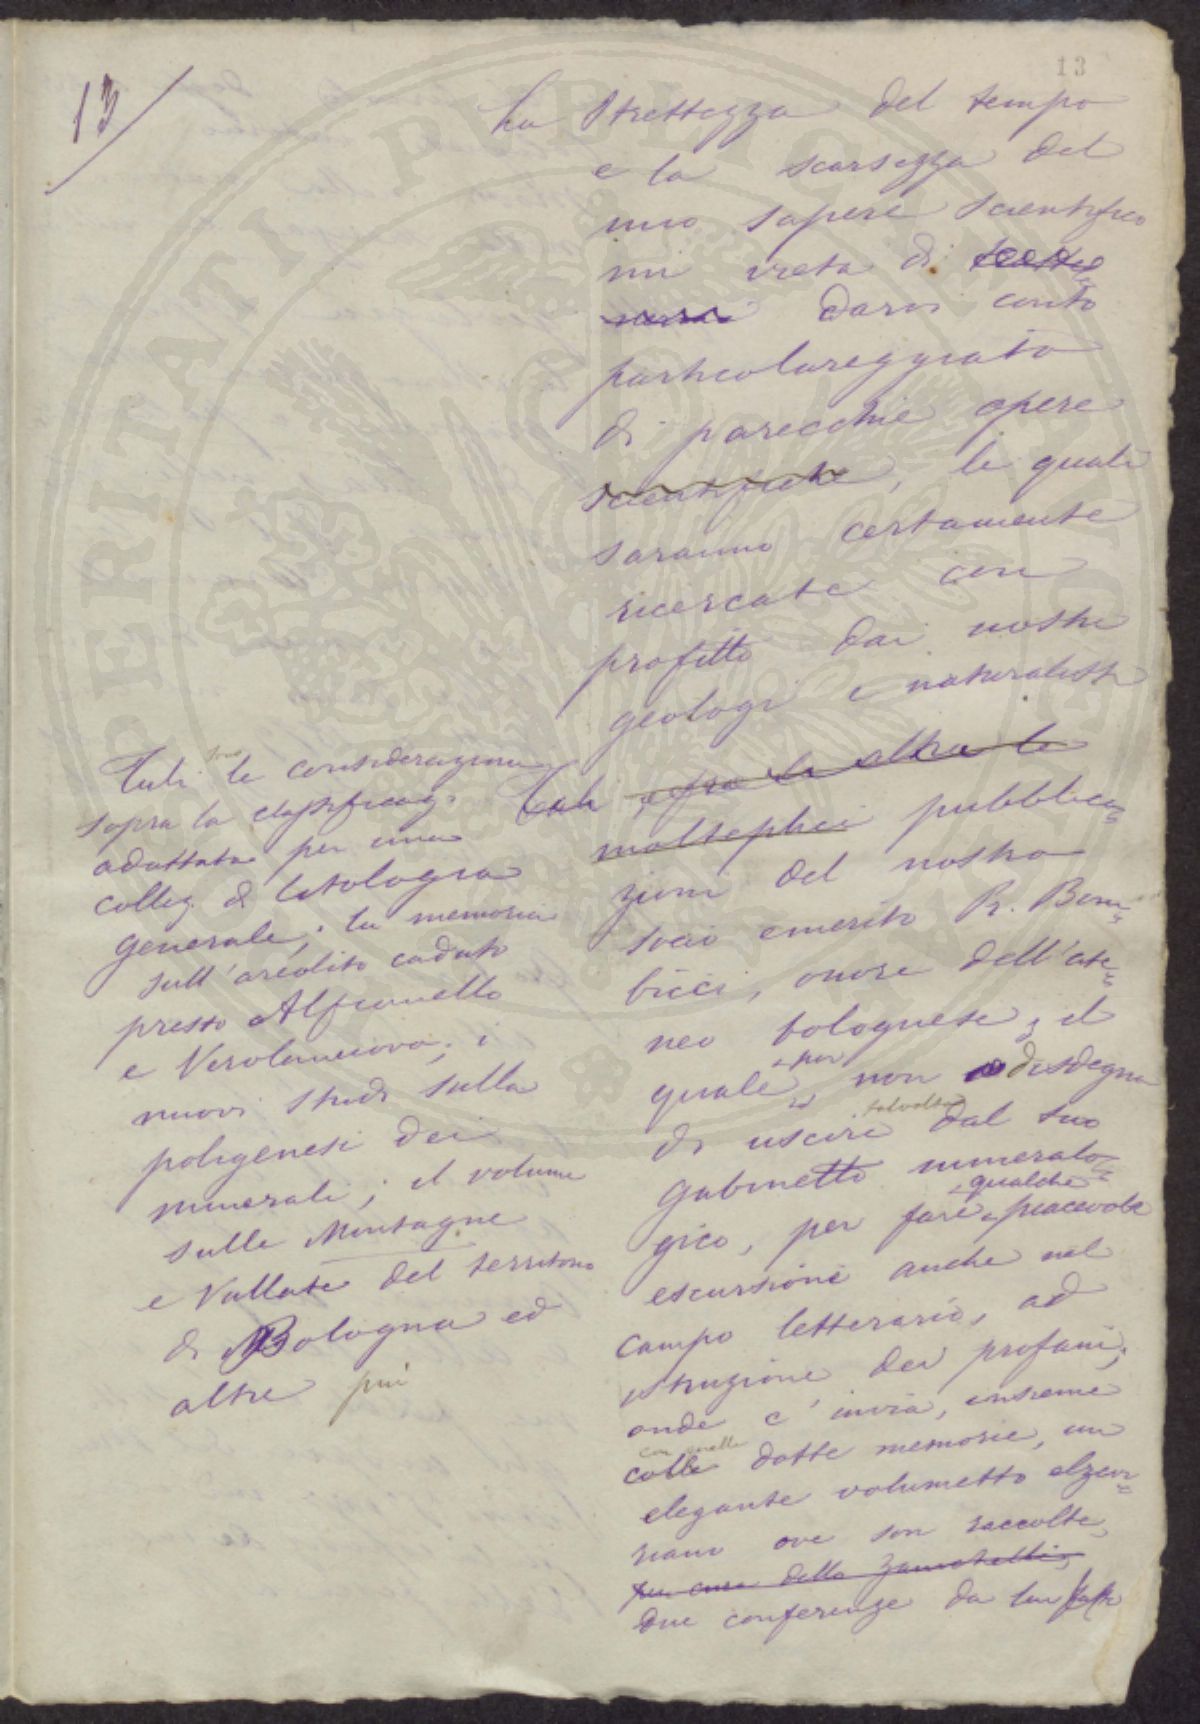 13
13
La strettezza del tempo
e la scarsezza del
mio sapere scientifico
mi vieta di
darvi conto
particolareggiato
di parecchie opere
scientifiche, le quali
saranno certamente
ricercate con
profitto dai nostri
geologi e naturalisti
Tali, e fra le altre le
molteplici pubblica=
zioni del nostro
socio emerito P. Bom=
bicci, onore dell'ate=
neo bolognese, il
quale pur non disdegna
di uscire talvolta dal suo
gabinetto mineralo=
gico, per fare qualche piacevole
escursione anche nel
campo letterario, ad
istruzione dei profani;
onde c'invia, insieme
colle con quelle dotte memorie, un
elegante volumetto elzevi=
riano ove son raccolte,
per cura dello Zanichelli,
due conferenze da lui
Tali sono le considerazioni
sopra la classificaz.
adottata per una
collez. di litologia
generale; la memoria
sull'areolito caduto
presso Alfianello
e Verolanuova; i
nuovi studi sulla
poligenesi dei
minerali; il volume
sulle Montagne
e Vallate del territorio
di Bologna ed
altre più
PERITATI PUBLICAE